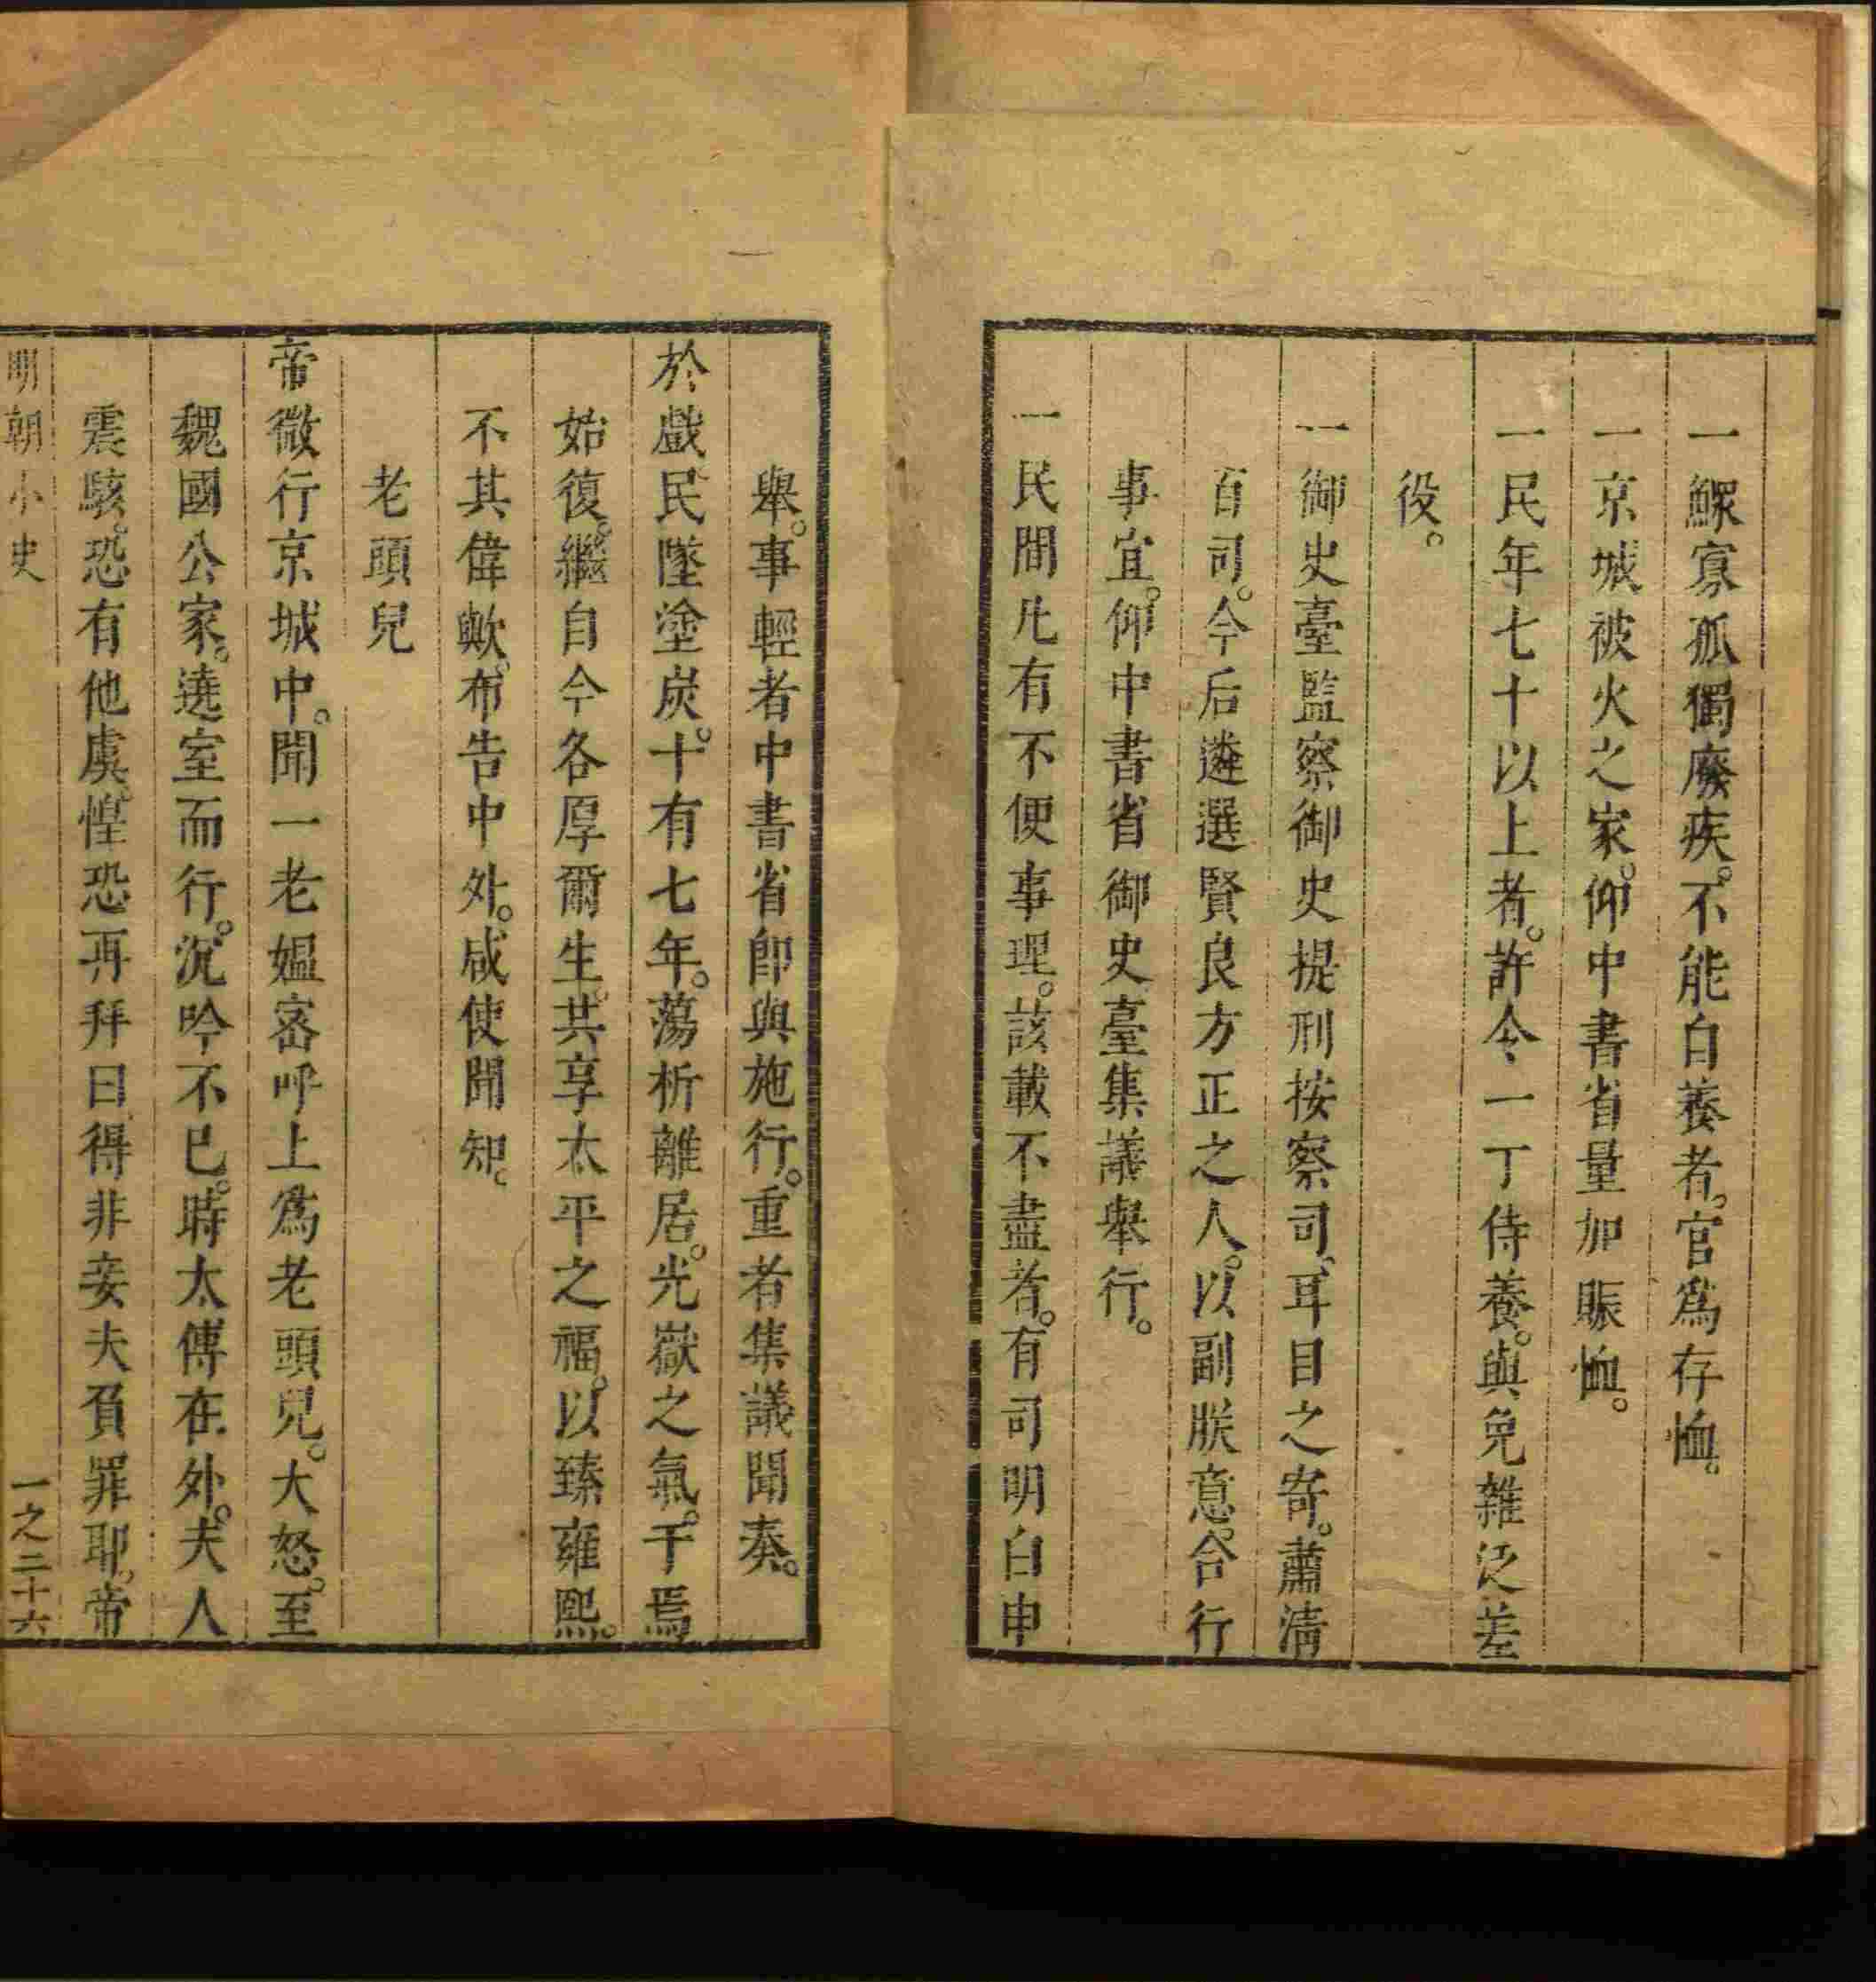 一鰥寡孤獨廢疾。不能自養者。官爲存恤。
一京城被火之家。仰中書省量加賑恤。
一民年七十以上者。許令一丁侍養。與免雜泛差
役。
一御史臺監察御史提刑按察司、耳目之寄。肅清
百司。今后遴選賢良方正之人。以副朕意。合行
事宜。仰中書省御史臺集議舉行。
一民間凢有不便事理。該載不盡者。有司明白申
舉。事輕者中書省卽與施行。重者集議聞奏。
於戲、民墜塗炭。十有七年。蕩析離居。光嶽之氣。于焉
始復。繼自今各厚爾生。共享太平之福。以臻雍熙。
不其偉歟。布告中外。咸使聞知。
老頭兒
帝微行京城中。聞一老媪宻呼上爲老頭兒。大怒。至
魏國公家。遶室而行。沉吟不已。時太傅在外。夫人
震駭。恐有他虞。惶恐再拜曰、得非妾夫負罪耶。帝
明朝小史
一之二十六